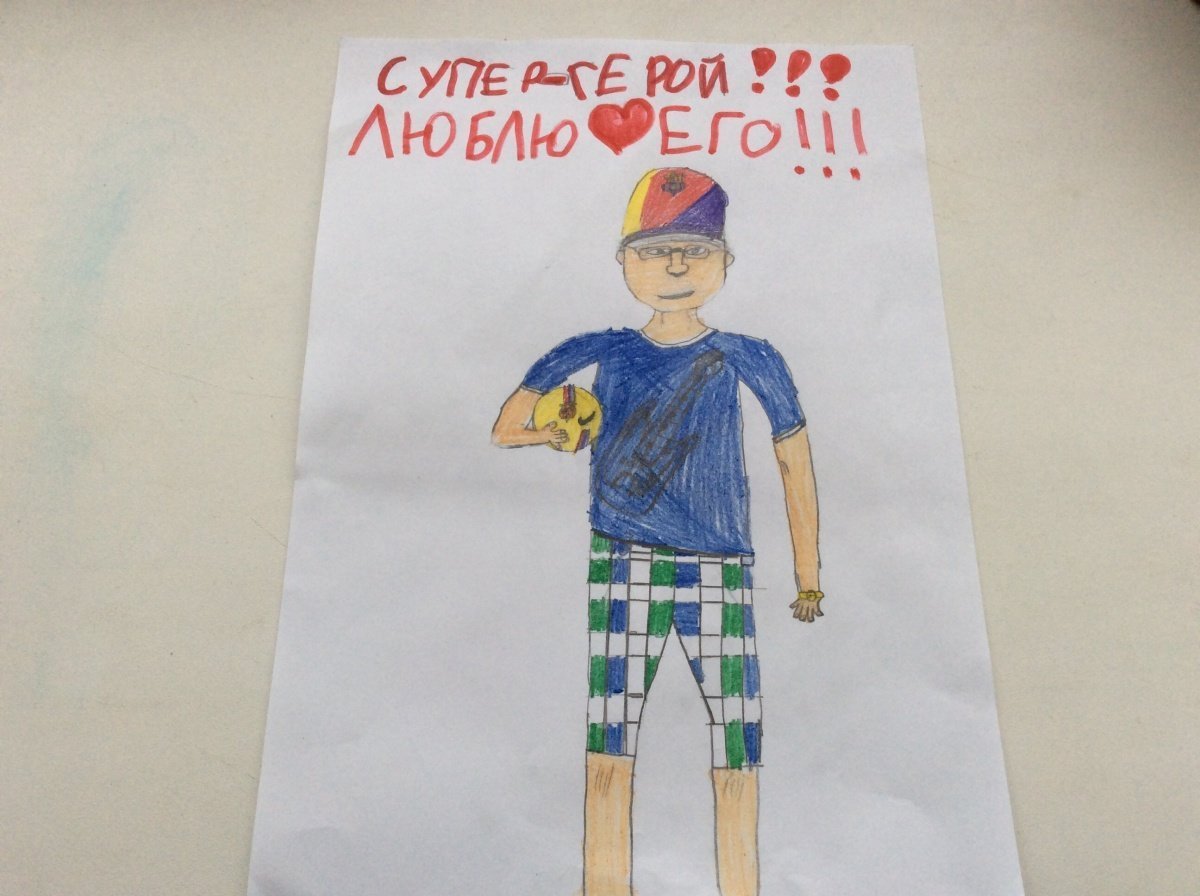 СУПЕР-ГЕРОЙ!!!
ЛЮБЛЮ ❤ ЕГО!!!